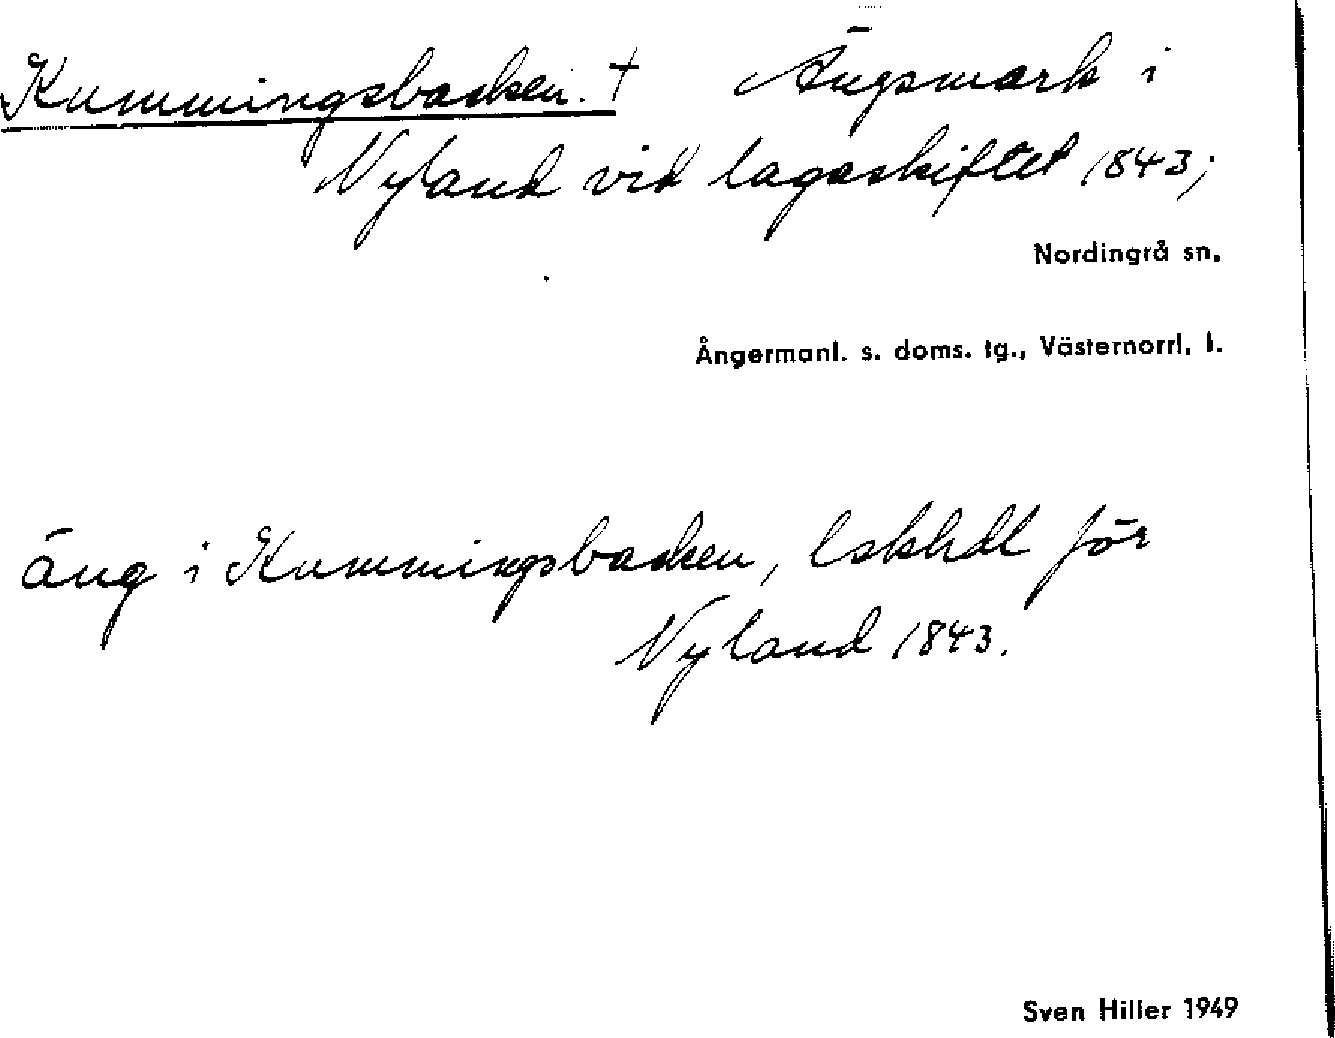 Kummingsbacken. † Ängsmark i
Nyland vid lagaskiftet 1843;
Nordingrå sn.
Ångermanl. s. doms. tg., Västernorrl. l.
äng i Kummingsbacken, lskhdl för
Nyland 1843.
Sven Hiller 1949